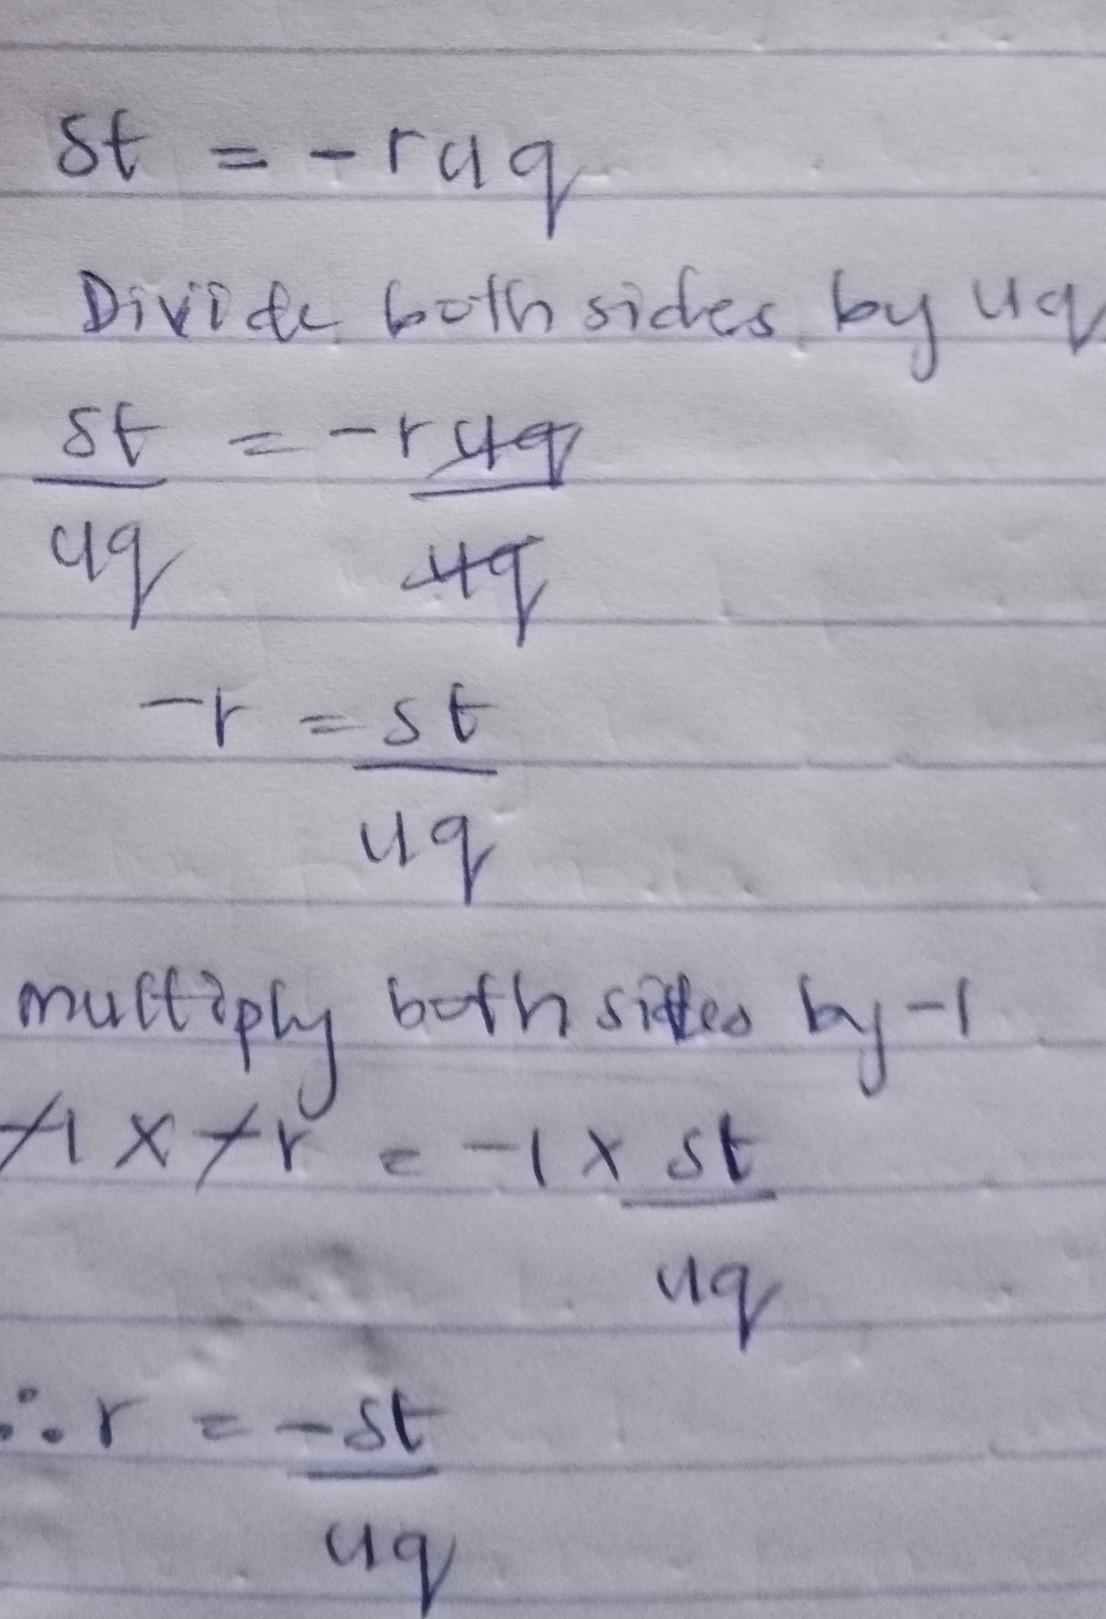 st = -ruq
Divide both sides by uq
st = -ruq
uq uq
-r = st
uq
multiply both sides by -1
-1 x -r = -1 x st
uq
∴ r = -st
uq